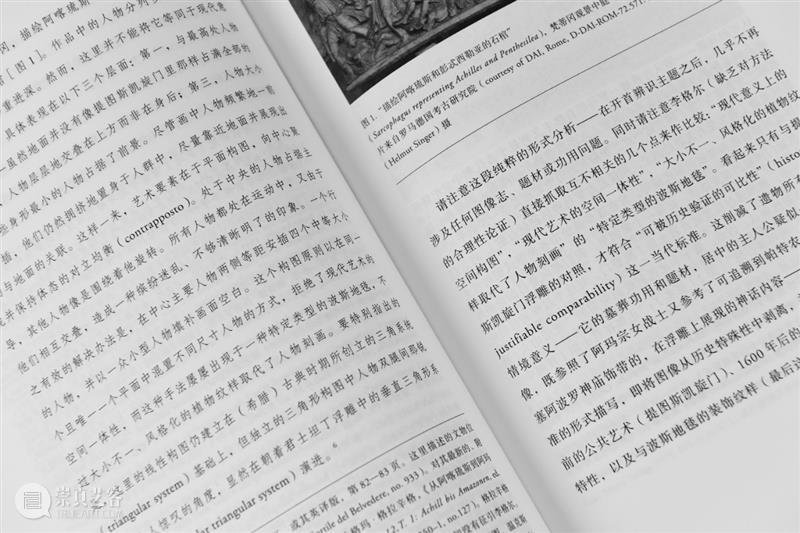 冈，描绘阿喀琉斯
斯［图1］。作品中的人物分列
重进深。然而，这里并不能将它等同于现代意
具体表现在以下三个层面：第一，与最高处人物
—虽然地面并没有像提图斯凯旋门里那样占满全部的
，人物层层地交叠在上方而非在身后；第三，人物大小
些身形最小的人物占据了前景。尽管画中人物频繁地一前
插，他们仍然拥挤地置身于人群中，尽量靠近地面并展现出
与地面的关联。这样一来，艺术要素在于平面构图，向中心聚
并保持体态的对立均衡（contrapposto）。处于中央的人物占据主
导，其他人物像是围绕着他旋转。所有人物都处在运动中，又
他们相互交叠，造成一种缤纷迷乱、不够清晰明了的印象。一个行
之有效的解决办法是，在中心主要人物两侧等距安插四个中等大小
的人物，并以一众小型人物填补画面空白。这个构图原则以在同一
个且唯一一个平面中混置不同尺寸人物的方式，拒绝了现代艺术的
空间一体性，而这种手法屡屡出现于一种特定类型的波斯地毯，不
过大小不一、风格化的植物纹样取代了人物刻画。要特别指出的
里的线性构图仍建立在（希腊）古典时期所创立的三角系统
（triangular system）基础上，但独立的三角形构图与人物双腿间那锐
人惊叹的角度，显然在朝着君士坦丁浮雕中的垂直三角形系
triangular system）演进。6
或其英译版，第82—83页。这里描述的文物位
Cortile del Belvedere, no. 933)。对其最新的、
格玛·格拉辛格，《从阿喀琉斯到阿玛
12. T. 1: Achill bis Amazonen,
no.127)，格拉辛
没有征引李格尔，
图1. “描绘阿喀琉斯和彭忒西勒亚的石棺”
(Sarcophagus representing Achilles and Penthesilea)，梵蒂冈观景中庭
片来自罗马德国考古研究院（courtesy of DAI, Rome, D-DAI-ROM-72.571
(Helmut Singer) 摄
请注意这段纯粹的形式分析——在开首辨识主题之后，几乎不再
涉及任何图像志、题材或功用问题。同时请注意李格尔（缺乏对方法
的合理性论证）直接抓取互不相关的几个点来作比较：“现代意义上的
空间构图”，“现代艺术的空间一体性”，“大小不一、风格化的植物纹
样取代了人物刻画”的“特定类型的波斯地毯”。看起来只有与提
斯凯旋门浮雕的对照，才符合“可被历史验证的可比性”（histor
justifiable comparability）这一当代标准。这削减了遗物所有
情境意义——它的墓葬功用和题材，居中的主人公疑似
像，既参照了阿玛宗女战士又参考了可追溯到帕特农
塞阿波罗神庙饰带的，在浮雕上展现的神话内容——
准的形式描写，即将图像从历史特殊性中剥离，
前的公共艺术（提图斯凯旋门）、1600年后的
特性，以及与波斯地毯的装饰纹样（最后
崇真艺客
TRUEART.COM